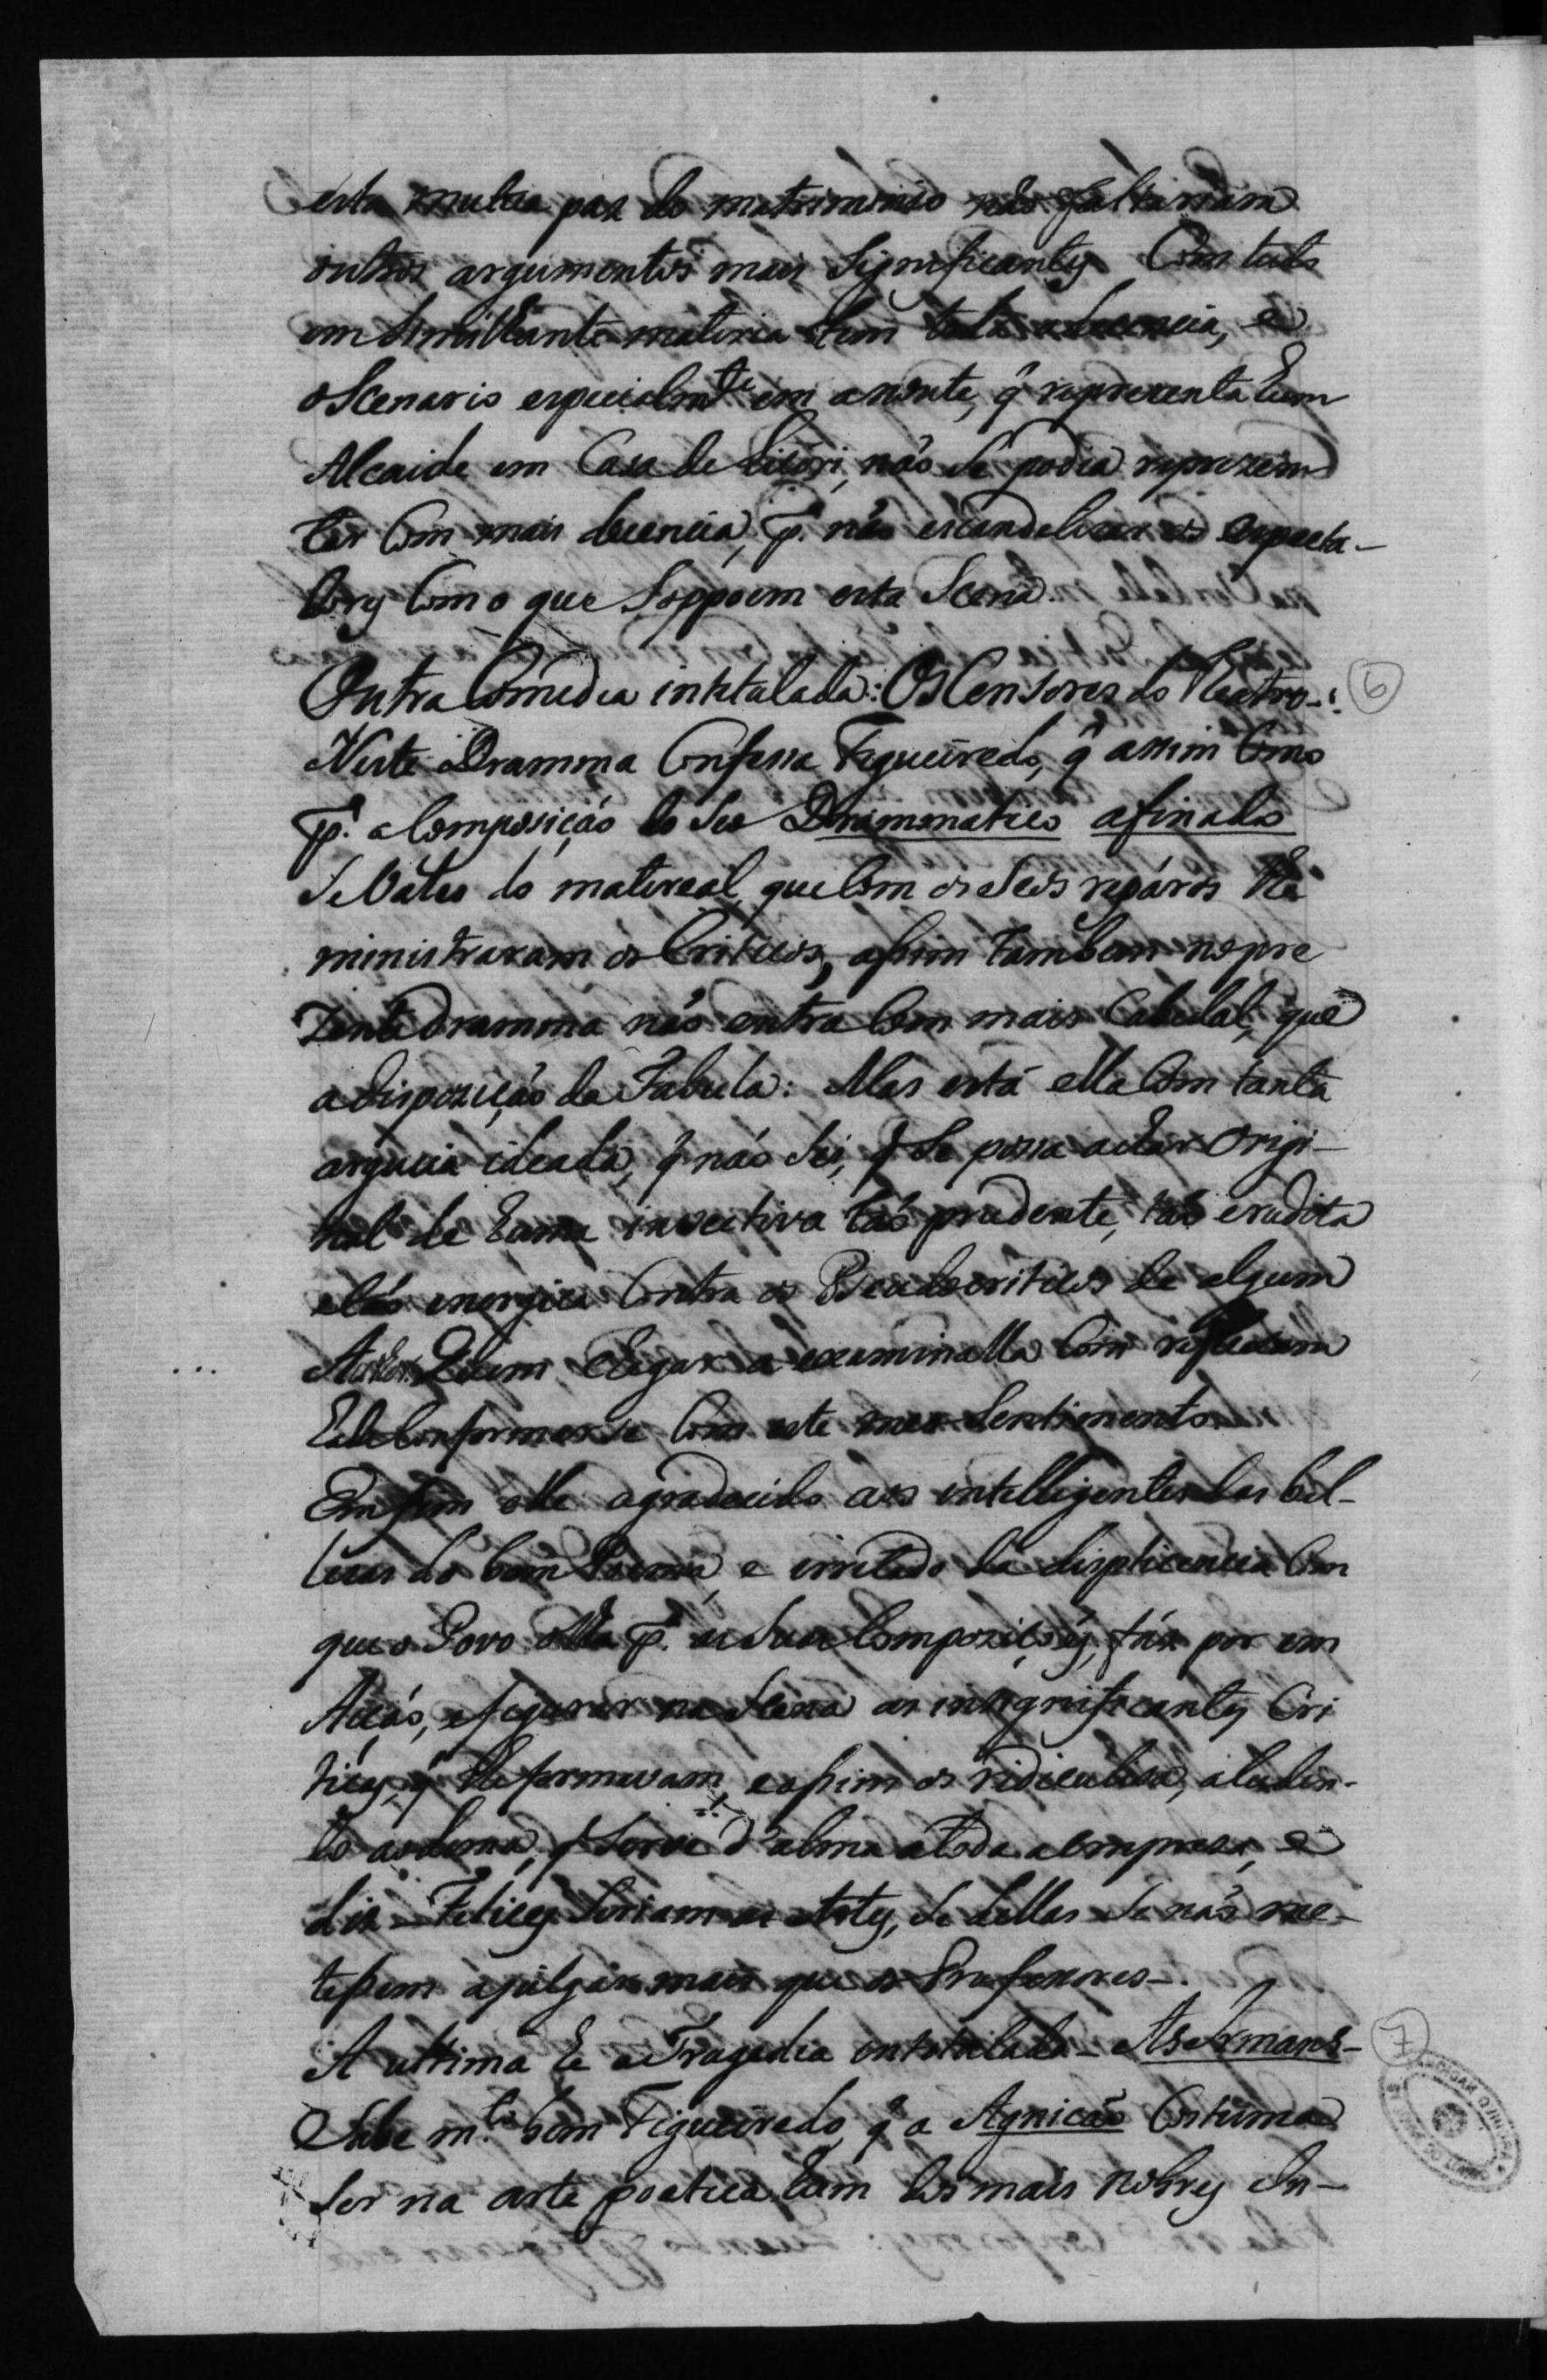 esta mutua paz do matrimonio não faltariam
outros argumentos mais significantes Com tudo
em similhante materia tem toda a decencia, e
o Scenario especialmte em a noute, q̃ reprezenta hum
Alcaide em Caza de Licóri, não se podia reprezen
tar Com mais decencia, pa. não escandelizar os especta-
dores Com o que Soppoem esta Scena.
Outra Comedia intitulada: Os Censores do Theatro-: 6
Neste Dramma Confessa Figueiredo, q̃ assim Como
pa. a Composição do Seo Drammatico afinado
Se Valeo do matereal, que Com os Seos repáros lhe
ministraram os Criticos, assim tambem no pre
zente Dramma não entra Com mais Cabedal, que
a dispozição da Fabula: Mas está ella Com tanta
argucia ideada, q̃ não Sei, q̃ Se possa achar Origi-
nal de huma invectiva tão prudente, tão erudita
e tão energica Contra os Pseudocriticos de algum
Author. Quem chegar a examinalla Com
ha de Conformarse Com este meo Sentimento.
Em fim elle agradecido aos intelligentes das bel-
lezas do bom Poema, e irritado da displicencia Com
que o Povo olha pa. as Suas Compoziçoẽs, fáz por em
Acção, e figurar na Scena as insignificantes Cri
ticas, q̃ lhe formavam, e assim os ridiculiza, aluden-
do ao lema, q̃ Serve d'alma a toda a empreza, e
diz - Felices Seriam as Artes, Se dellas Se não me-
tessem a julgar mais que os Professores-.
A ultima he a Tragedia intitulada - As Irmans- 7
Sabe mto. bem Figueiredo, q̃ a Agnicão Costuma
Ser na arte poetica hum dos mais nobres In-